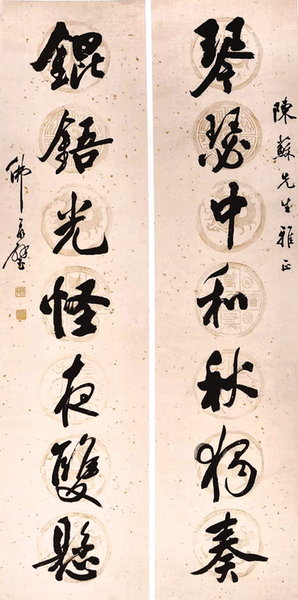 陳蘇先生雅正
琴瑟中和秋獨奏
錕鋙光怪夜雙懸
佛